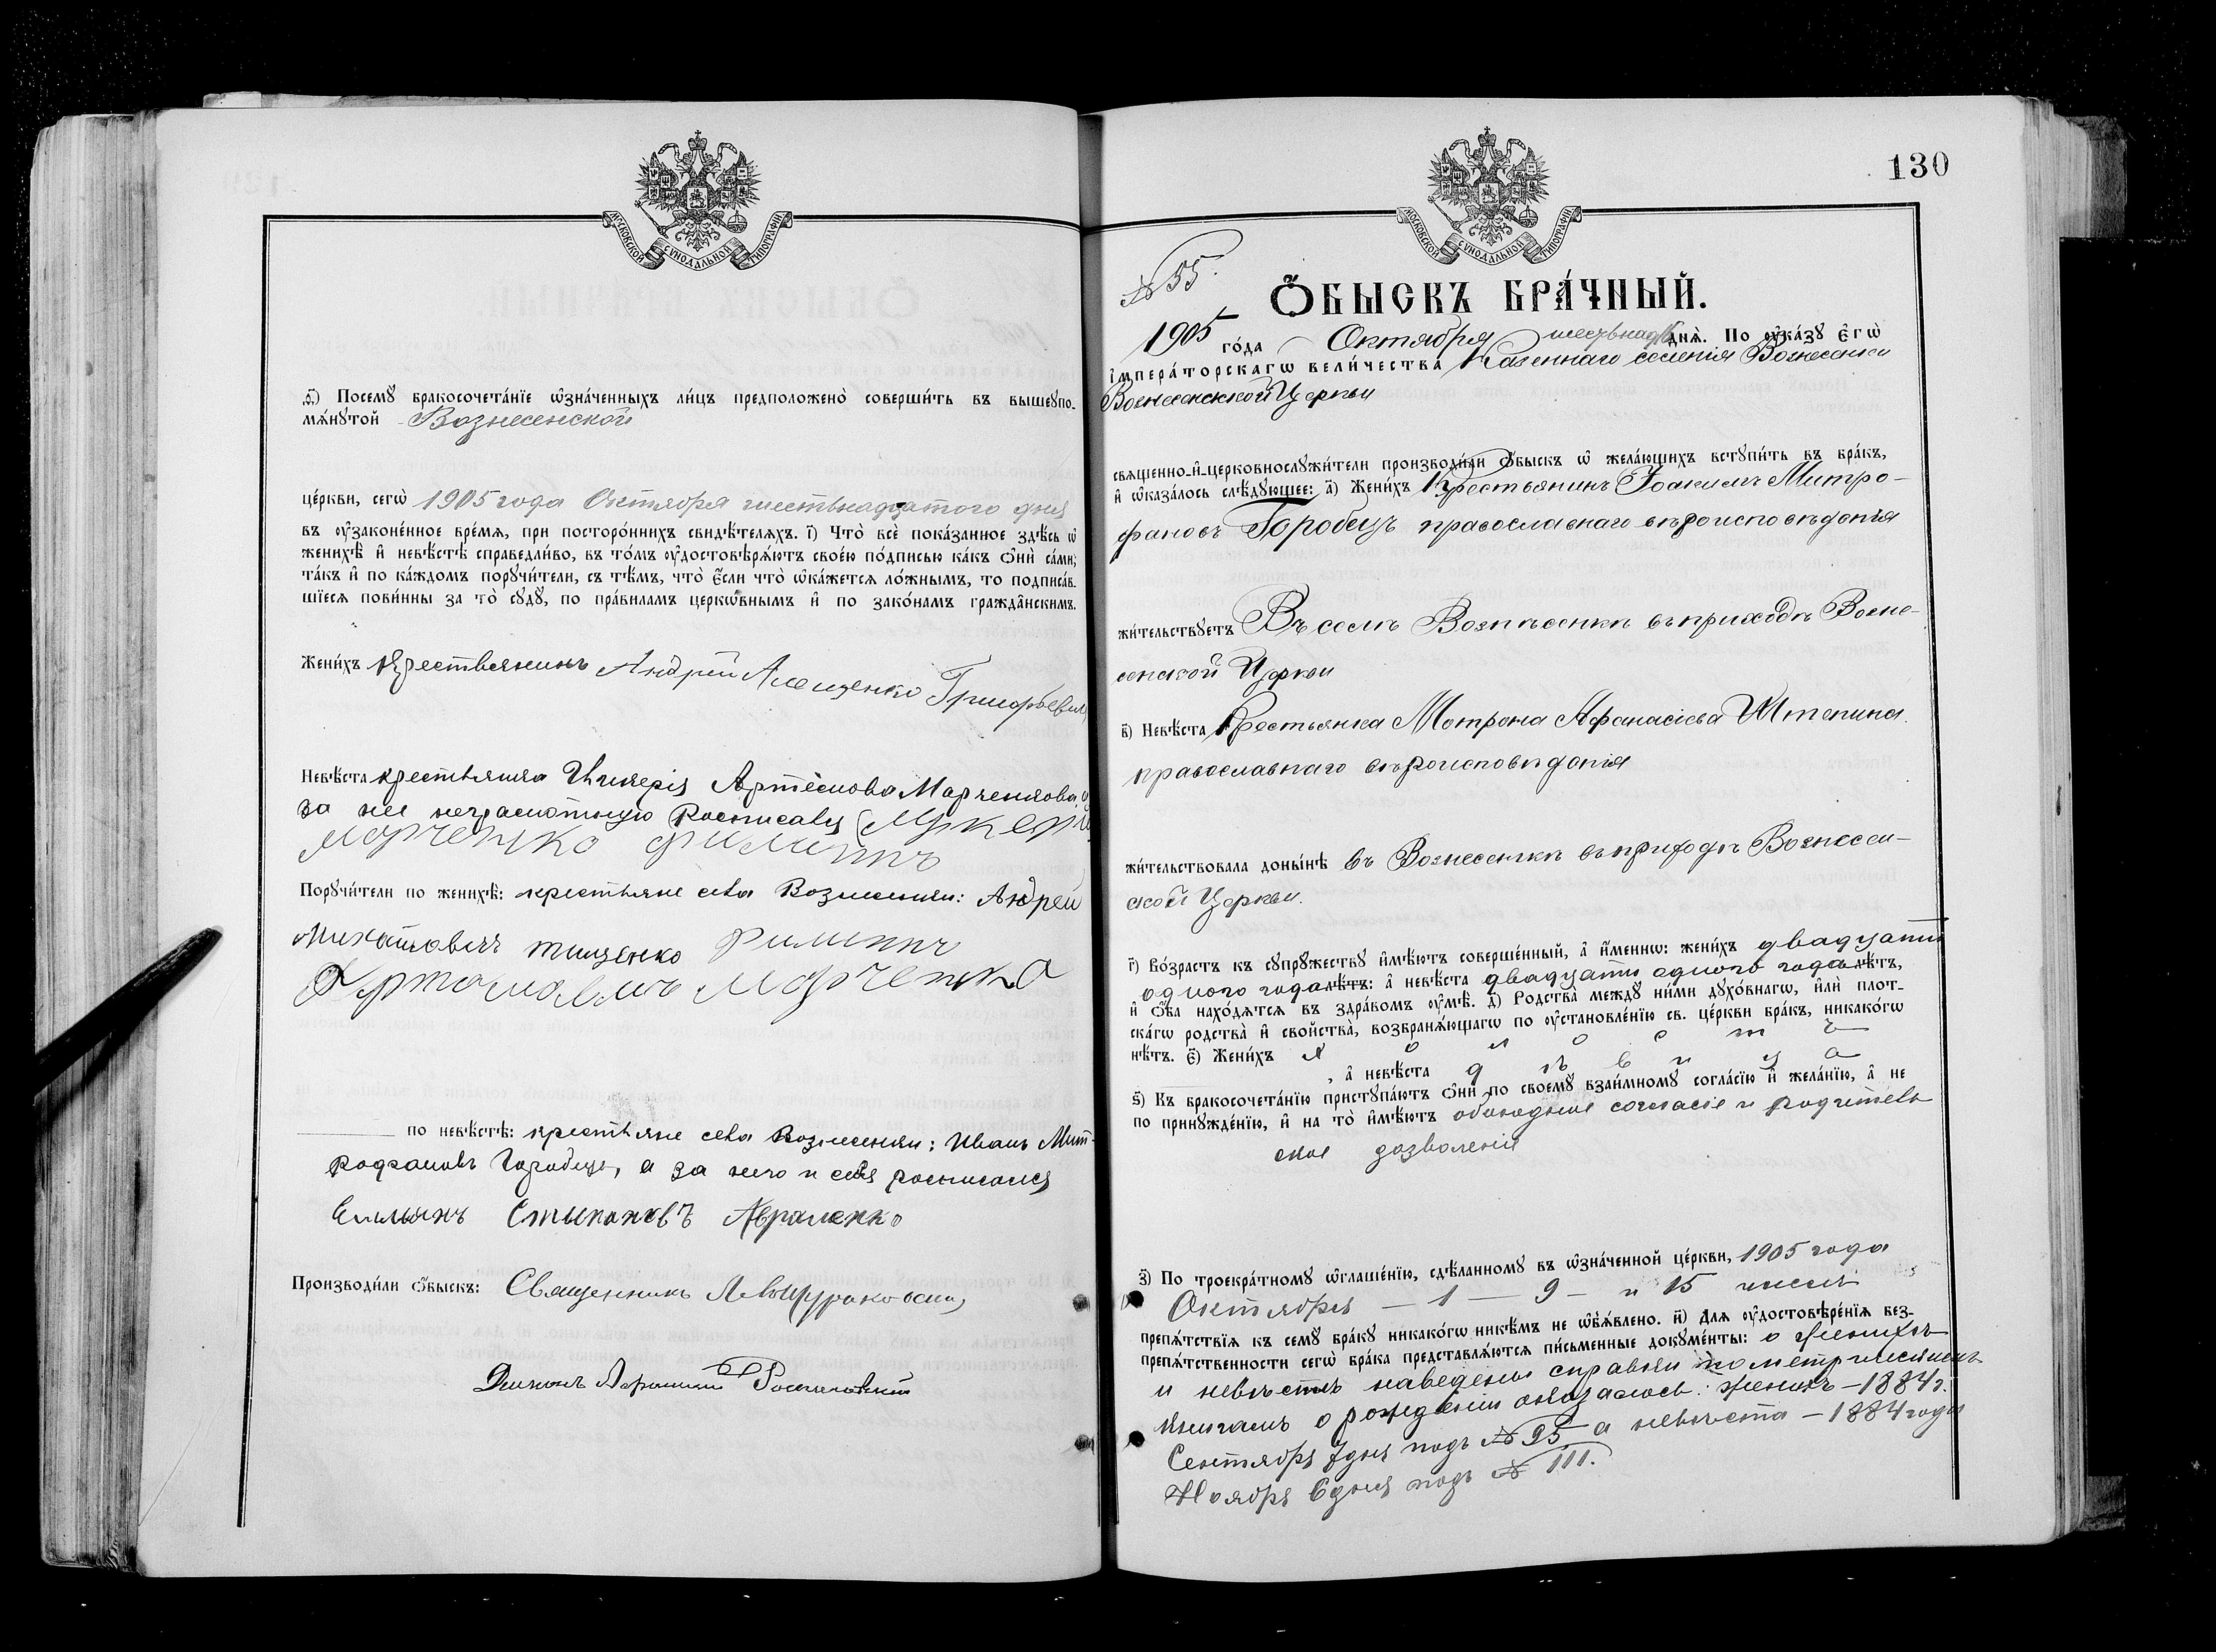 МОСКОВСКОЙ СѴНОДАЛЬНОЙ ТИПОГРАФІИ
ѳ҃) Посемꙋ̀ бракосочета́нїе ѡ҆зна́ченныхъ ли́цъ предположено̀ соверши́ть въ вышеꙋпо-
мѧ́нꙋтой Вознесенской
це́ркви, сегѡ̀ 1905 года Октября шестнадцатого дня
въ ᲂу҆законе́нное вре́мѧ, при посторо́ннихъ свидѣ́телѧхъ. і҃) Что̀ всѐ пока́занное здѣ́сь ѡ҆
женихѣ̀ и҆ невѣ́стѣ справедли́во, въ то́мъ ᲂу҆достовѣрѧ́ютъ свое́ю по́дписью ка́къ ѻ҆нѝ са́ми,
та́къ и҆ по ка́ждомъ порꙋчи́тели, съ тѣ́мъ, что̀ є҆́сли что̀ ѡ҆ка́жетсѧ ло́жнымъ, то подписа́в-
шїесѧ пови́нны за то̀ сꙋдꙋ̀, по пра́виламъ церко́внымъ и҆ по зако́намъ гражда̑нскимъ.
Жени́хъ Крестьянинъ Андрей Григорьевичъ
Невѣ́ста крестьянка Артемова Марченкова, а
за нее неграмотную росписался
Марченко Филиппъ
Порꙋчи́тели по женихѣ̀: крестьяне села Вознесенки: Андрей
Михайловичъ Тищенко Филиппъ
Марченко
по невѣ́стѣ: крестьяне села Вознесенки: Иванъ Мит-
рофановъ Горобецъ, а за него и себя росписался
Емельянъ Степановъ Авраменко
Производи́ли ѻ҆́быскъ: Священникъ
Дьяконъ
130
МОСКОВСКОЙ СѴНОДАЛЬНОЙ ТИПОГРАФІИ
№ 55.
Ѻ҆́БЫСКЪ БРА́ЧНЫЙ.
1905 го́да Октября шестнадц. днѧ̀. По ᲂу҆ка́зꙋ є҆гѡ̀
і҆мпера́торскагѡ вели́чества Казеннаго селенія Вознесенки
Вознесенской Церкви
свѧще́нно-и҆-церковнослꙋжи́тели производи́ли ѻ҆́быскъ ѡ҆ жела́ющихъ встꙋпи́ть въ бра́къ,
и҆ ѡ҆каза́лось слѣ́дꙋющее: а҃) Жени́хъ Крестьянинъ Іоакимъ Митро-
фановъ Горобецъ православнаго вѣроисповѣданія
жи́тельствꙋетъ Въ селѣ Вознѣсенкѣ въ приходѣ Возне-
сенской Церкви
в҃) Невѣ́ста Крестьянка Матрона Афанасіева
православнаго вѣроисповѣданія
жи́тельствовала доны́нѣ въ Вознесенкѣ въ приходѣ Вознесен-
ской Церкви.
г҃) Во́зрастъ къ сꙋпрꙋ́жествꙋ и҆мѣ́ютъ соверше́нный, а҆ и҆́меннѡ: жени́хъ двадцати
одного года лѣ́тъ: а҆ невѣ́ста двадцати одного года лѣ́тъ,
и҆ ѻ҆́ба нахо́дѧтсѧ въ здра́вомъ ᲂу҆мѣ̀. д҃) Родства̀ междꙋ̀ ни́ми дꙋхо́внагѡ, и҆лѝ пло́т-
скагѡ родства̀ и҆ свойства̀, возбранѧ́ющагѡ по ᲂу҆становле́нїю св. це́ркви бра́къ, никако́гѡ
нѣ́тъ. є҃) Жени́хъ холостъ
, а҆ невѣ́ста дѣвица
ѕ҃) Къ бракосочета́нїю пристꙋпа́ютъ ѻ҆нѝ по своемꙋ̀ взаи́мномꙋ согла́сїю и҆ жела́нїю, а҆ не
по принꙋжде́нїю, и҆ на то̀ и҆мѣ́ютъ обоюдное согласіе и родитель
ское дозволеніе
з҃) По троекра́тномꙋ ѡ҆глаше́нїю, сдѣ́ланномꙋ въ ѡ҆зна́ченной це́ркви, 1905 года
Октября — 1 — 9 — и 15 чиселъ
препѧ́тствїѧ къ семꙋ̀ бра́кꙋ никако́гѡ никѣ́мъ не ѡ҆б̾ѧ́влено. и҃) Для ᲂу҆достовѣре́нїѧ без-
препѧ́тственности сегѡ̀ бра́ка представлѧ́ютсѧ пи́сьменные докꙋме́нты: о женихѣ
и невѣстѣ наведены справки по метрическимъ
книгамъ о рожденіи оказалось: женихъ — 1884 г.
Сентября 7 дня подъ № 95 а невѣста — 1884 года
Ноября 6 дня подъ № 111.